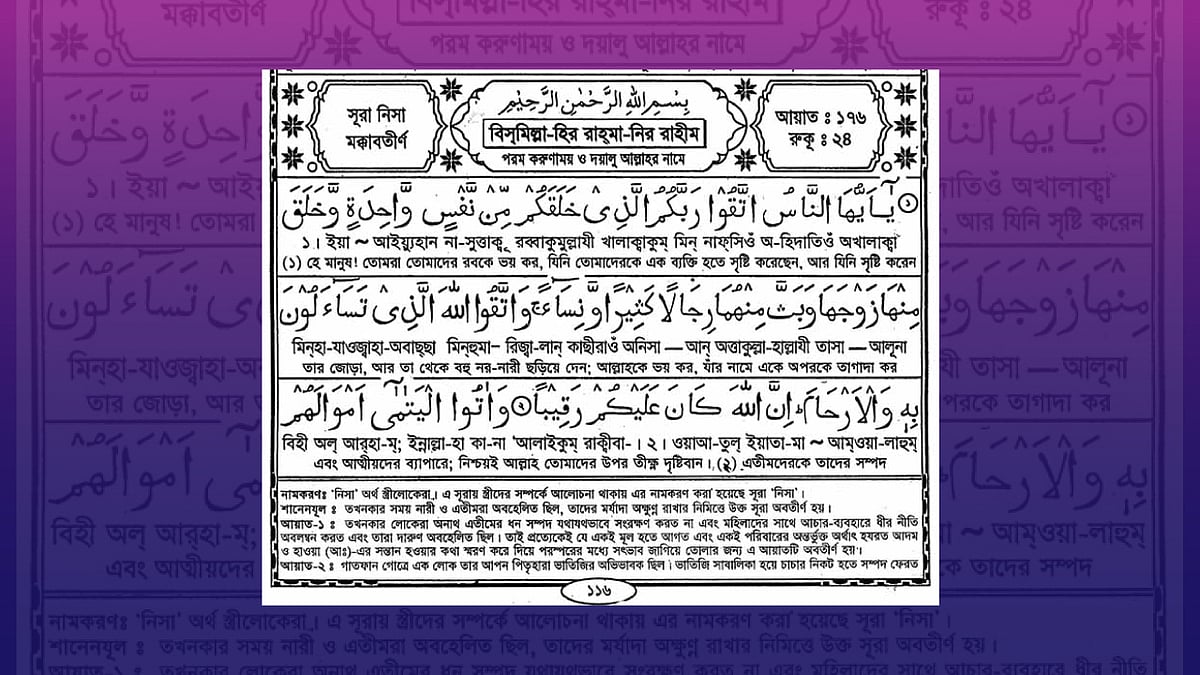 সূরা নিসা
মক্কাবতীর্ণ
بِسْمِ اللهِ الرَّحْمٰنِ الرَّحِيْمِ
বিস্‌মিল্লা-হির রাহ্‌মা-নির রাহীম
পরম করুণাময় ও দয়ালু আল্লাহর নামে
আয়াত : ১৭৬
রুকূ : ২৪
يٰۤاَيُّهَا النَّاسُ اتَّقُوْا رَبَّكُمُ الَّذِىْ خَلَقَكُمْ مِّنْ نَّفْسٍ وَّاحِدَةٍ وَّخَلَقَ
১। ইয়া ~ আইয়্যুহান না-সুত্তাকূ রব্বাকুমুল্লাযী খালাক্বাকুম্ মিন্ নাফ্সিওঁ অ-হিদাতিওঁ অখালাক্বা
(১) হে মানুষ! তোমরা তোমাদের রবকে ভয় কর, যিনি তোমাদেরকে এক ব্যক্তি হতে সৃষ্টি করেছেন, আর যিনি সৃষ্টি করেন
مِنْهَا زَوْجَهَا وَبَثَّ مِنْهُمَا رِجَالًا كَثِيْرًا وَّنِسَآءً ۚ وَاتَّقُوا اللهَ الَّذِىْ تَسَآءَلُوْنَ
মিন্‌হা-যাওজ্বাহা-অবাছ্ছা মিন্‌হুমা– রিজ্বা-লান্ কাছীরাওঁ অনিসা — আন্ অত্তাকুল্লা-হাল্লাযী তাসা — আলূনা
তার জোড়া, আর তা থেকে বহু নর-নারী ছড়িয়ে দেন; আল্লাহকে ভয় কর, যাঁর নামে একে অপরকে তাগাদা কর
بِهٖ وَالْاَرْحَامَ ؕ اِنَّ اللهَ كَانَ عَلَيْكُمْ رَقِيْبًا ۝ وَاٰتُوا الْيَتٰمٰٓى اَمْوَالَهُمْ
বিহী অল্ আর্‌হা-ম্; ইন্নাল্লা-হা কা-না 'আলাইকুম্ রাক্বীবা-। ২। ওয়াআ-তুল্ ইয়াতা-মা ~ আম্‌ওয়া-লাহুম্
এবং আত্মীয়দের ব্যাপারে; নিশ্চয়ই আল্লাহ তোমাদের উপর তীক্ষ্ণ দৃষ্টিবান। (২) এতীমদেরকে তাদের সম্পদ
নামকরণঃ 'নিসা' অর্থ স্ত্রীলোকেরা। এ সূরায় স্ত্রীদের সম্পর্কে আলোচনা থাকায় এর নামকরণ করা হয়েছে সূরা 'নিসা'।
শানেনযূল : তখনকার সময় নারী ও এতীমরা অবহেলিত ছিল, তাদের মর্যাদা অক্ষুণ্ন রাখার নিমিত্তে উক্ত সূরা অবতীর্ণ হয়।
আয়াত-১ : তখনকার লোকেরা অনাথ এতীমের ধন সম্পদ যথাযথভাবে সংরক্ষণ করত না এবং মহিলাদের সাথে আচার-ব্যবহারে ধীর নীতি
অবলম্বন করত এবং তারা দারুণ অবহেলিত ছিল। তাই প্রত্যেকেই যে একই মূল হতে আগত এবং একই পরিবারের অন্তর্ভুক্ত অর্থাৎ হযরত আদম
ও হাওয়া (আঃ)-এর সন্তান হওয়ার কথা স্মরণ করে দিয়ে পরস্পরের মধ্যে সৎভাব জাগিয়ে তোলার জন্য এ আয়াতটি অবতীর্ণ হয়।
আয়াত-২ : গাতফান গোত্রে এক লোক তার আপন পিতৃহারা ভাতিজির অভিভাবক ছিল। ভাতিজি সাবালিকা হয়ে চাচার নিকট হতে সম্পদ ফেরত
১১৬